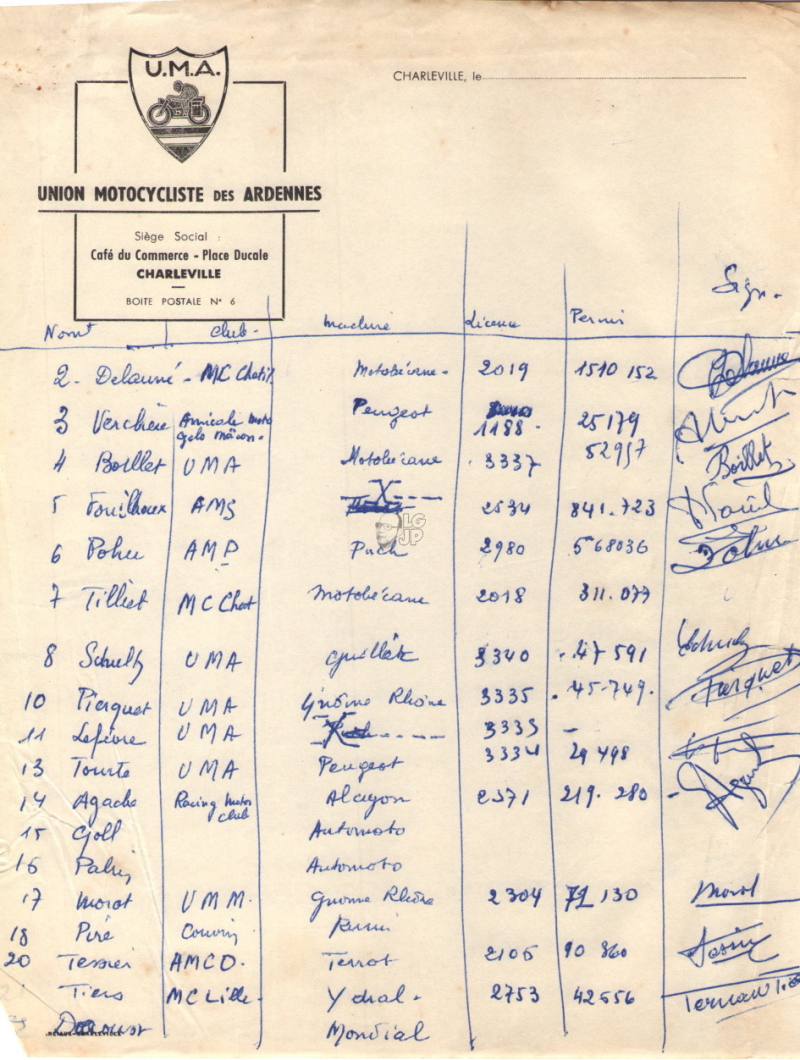 U.M.A.
CHARLEVILLE, le
UNION MOTOCYCLISTE DES ARDENNES
Siège Social :
Café du Commerce - Place Ducale
CHARLEVILLE
BOITE POSTALE N° 6
Sign.
Nom Club. Machine Licence Permis
2. Delauné - MC Chatil Motobécane. 2019 1510 152
3 Verchère Amicale moto Cyclo Mâcon. Peugeot 1188. 25179
4 Boillet UMA Motobécane 3337 52957 Boillet
5 Fouilhoux AMS X 2534 841.723
LG
JP
6 Pohu AMP Puch 2980 568036
7 Tilliet MC Chat Motobécane 2018 311.077
8 Schultz UMA Guillet 3340 47 591
10 Pierquet UMA Gnôme Rhône 3335 45-749. Pierquet
11 Lefèvre UMA 3333 -
13 Tourte UMA Peugeot 3334 29 498
14 Agache Racing motor club Alcyon 2571 219.280
15 Goll Automoto
16 Automoto
17 Morot UMM. Gnome Rhône 2304 71 130 Morot
18 Piré Couvin Rumi
20 Tessier AMCD. Terrot 2105 90 860
Tiers MC Lille. Ydral. 2753 42556
Mondial